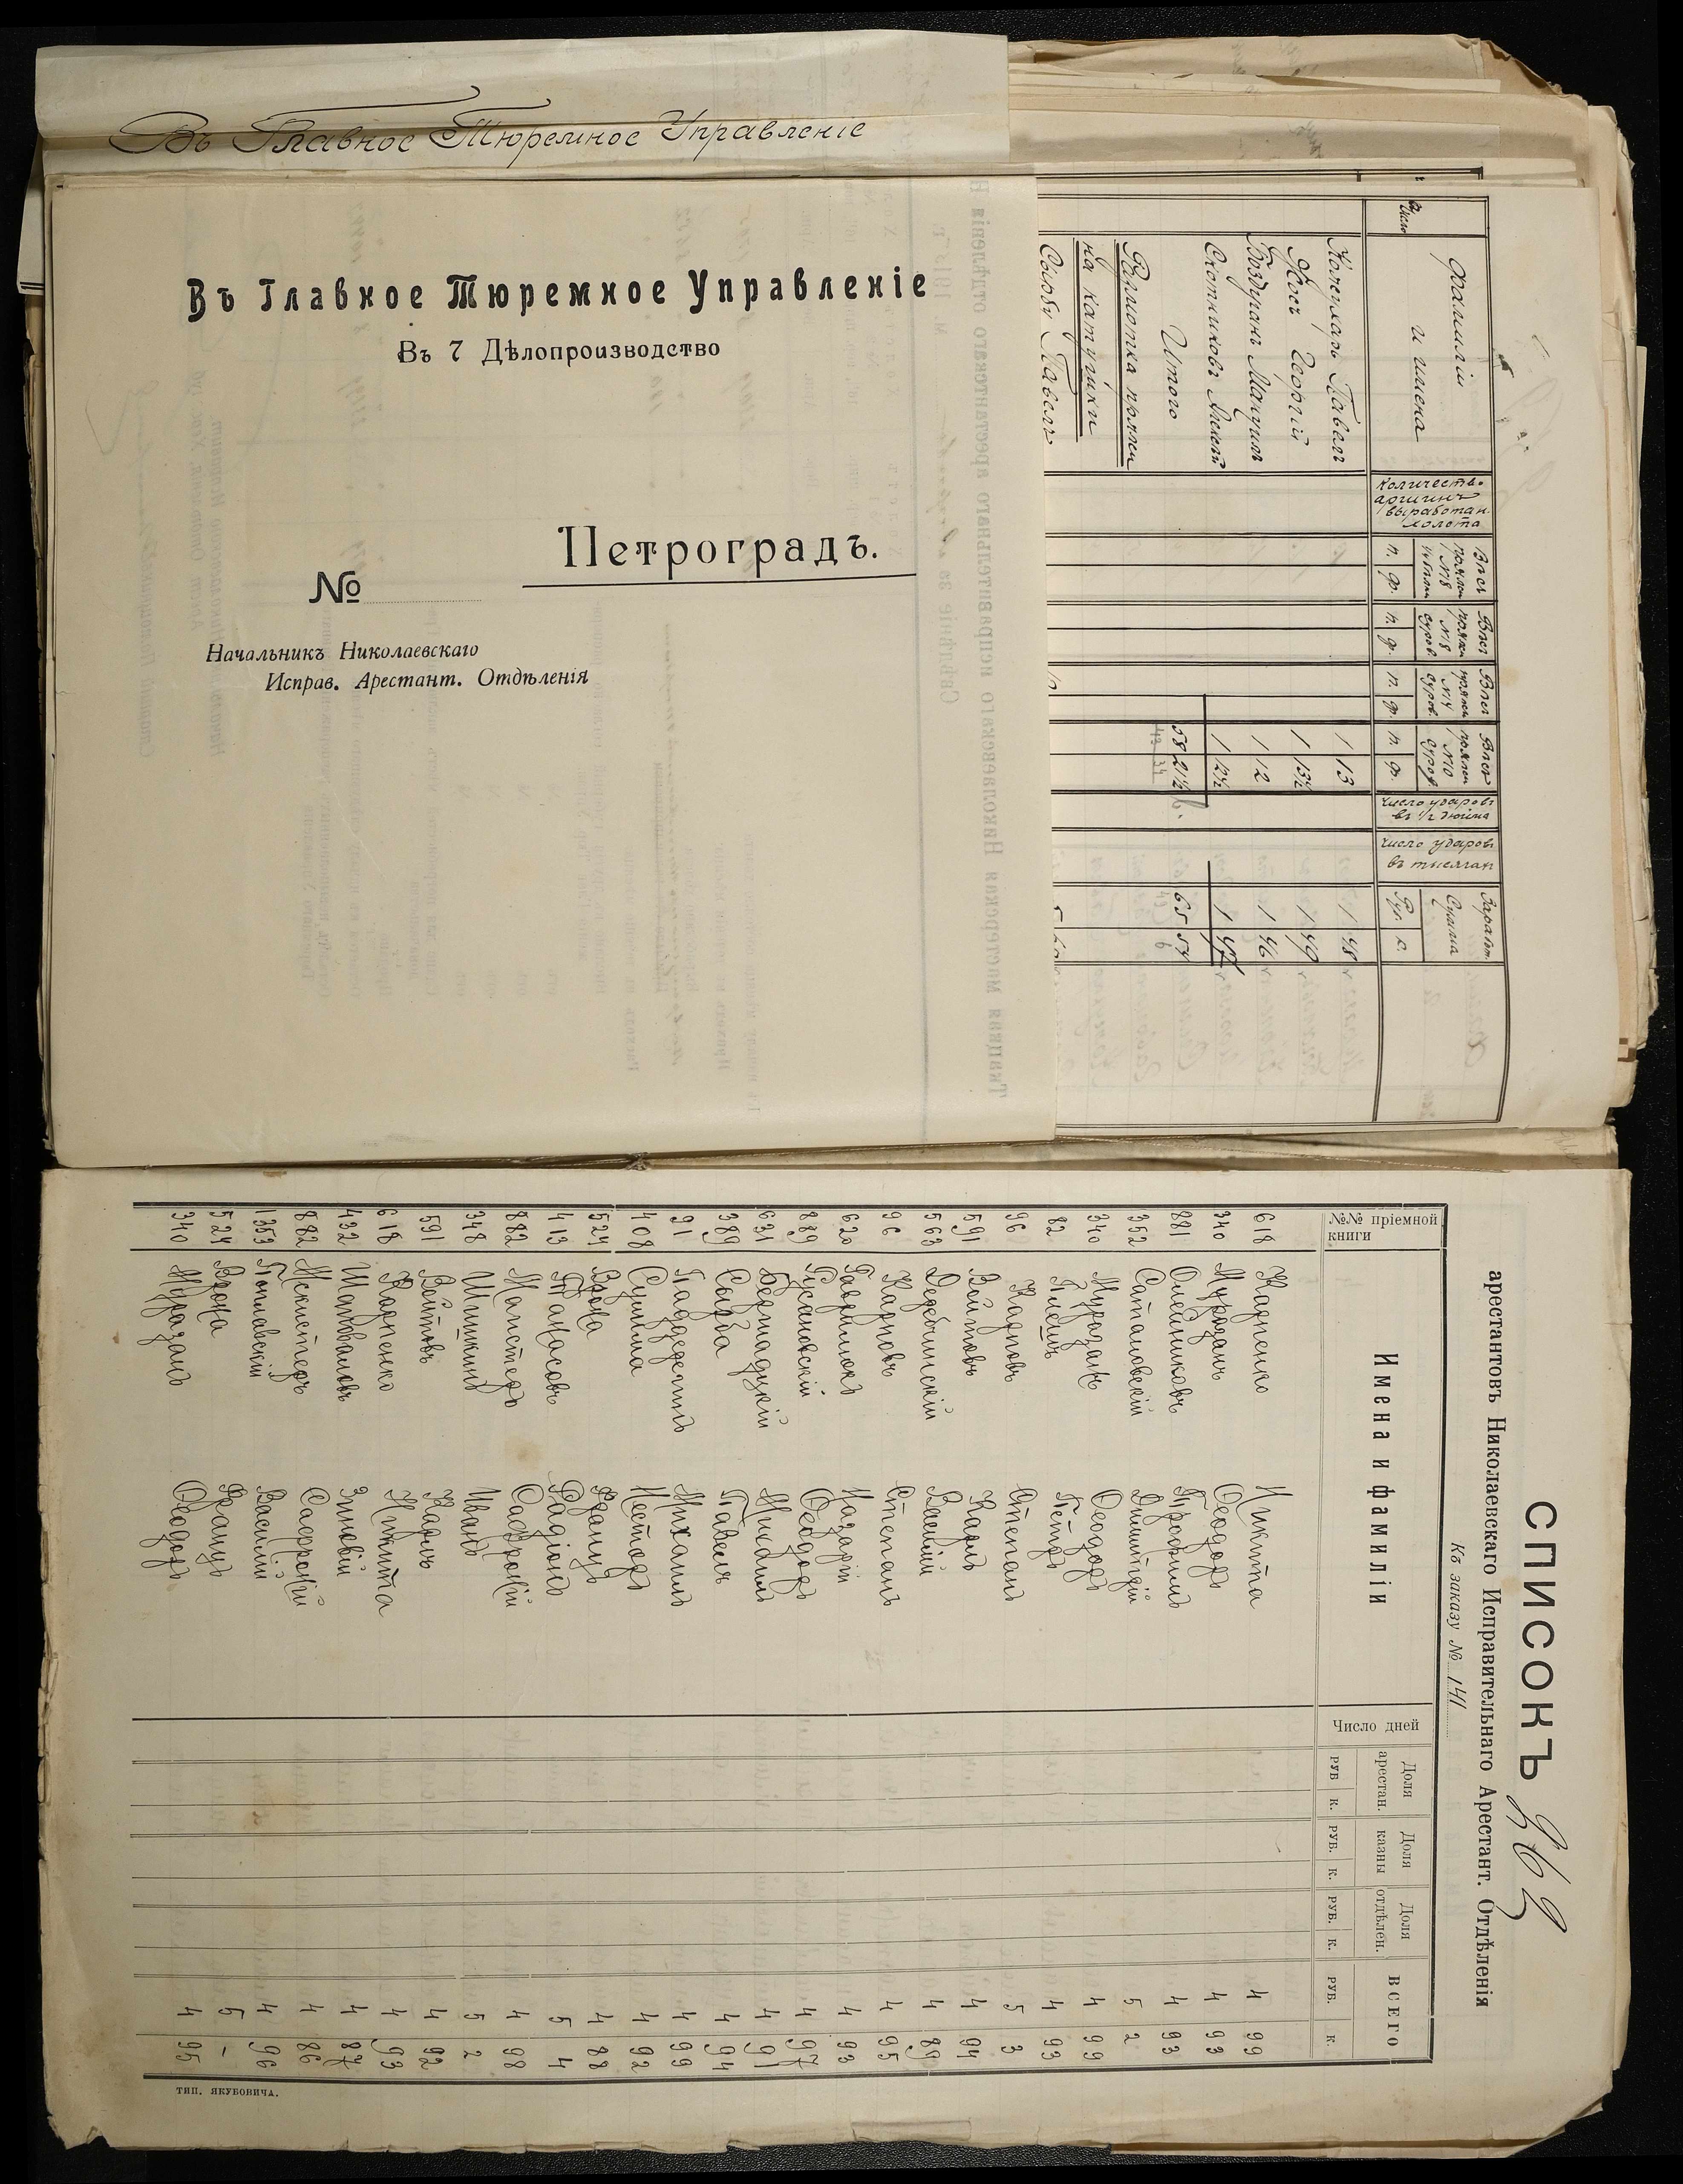 Въ Главное Тюремное Управленіе
Въ Главное Тюремное Управленіе
Въ 7 Дѣлопроизводство
Петроградъ.
№
Начальникъ Николаевскаго
Исправ. Арестант. Отдѣленія
Фамиліи и имена
Количество аршинъ выработан. холста
Число ударовъ въ 1/2 дюйма
Число ударовъ въ тысячах
Заработ. Сумма
Руб. к.
Павелъ 1 13 1 48
Георгій 1 13½ 1 49
1 12 1 46
1 12½ 1 47
Итого 58 21½ 65 54
Размотка пряжи
на катушки
Павелъ
СПИСОКЪ
арестантовъ Николаевскаго Исправительнаго Арестант. Отдѣленія
Къ заказу № 141
№№ пріемной книги
Имена и фамиліи
Число дней
Доля арестан. РУБ К.
Доля казны РУБ. К.
Доля отдѣлен. РУБ. К.
ВСЕГО РУБ. К.
618 Карпенко Никита 4 99
340 Мурзанъ Ѳеодоръ 4 93
881 Олейниковъ Трофимъ 4 93
352 Сатановскій Дмитрій 5 2
340 Мурзанъ Ѳеодоръ 4 99
82 Петръ 4 93
96 Карповъ Степанъ 5 3
591 Войтовъ Карлъ 4 94
563 Василій 4 89
96 Карповъ Степанъ 4 95
620 Гаврилюкъ Назарій 4 93
889 Русановскій Ѳеодоръ 4 97
631 Бернадцкій Михаилъ 4 91
389 Сырба Павелъ 4 94
91 Михаилъ 4 99
408 Сушима Несторъ 4 92
524 Врона Францъ 4 88
413 Танасовъ Радіонъ 5 4
882 Софроній 4 98
348 Шишкинъ Иванъ 5 2
591 Войтовъ Карлъ 4 92
618 Карпенко Никита 4 93
432 Шаповаловъ Зиновій 4 87
882 Софроній 4 86
1353 Поплавскій Василій 4 96
524 Врона Францъ 5 -
340 Мурзанъ Ѳеодоръ 4 95
ТИП. ЯКУБОВИЧА.